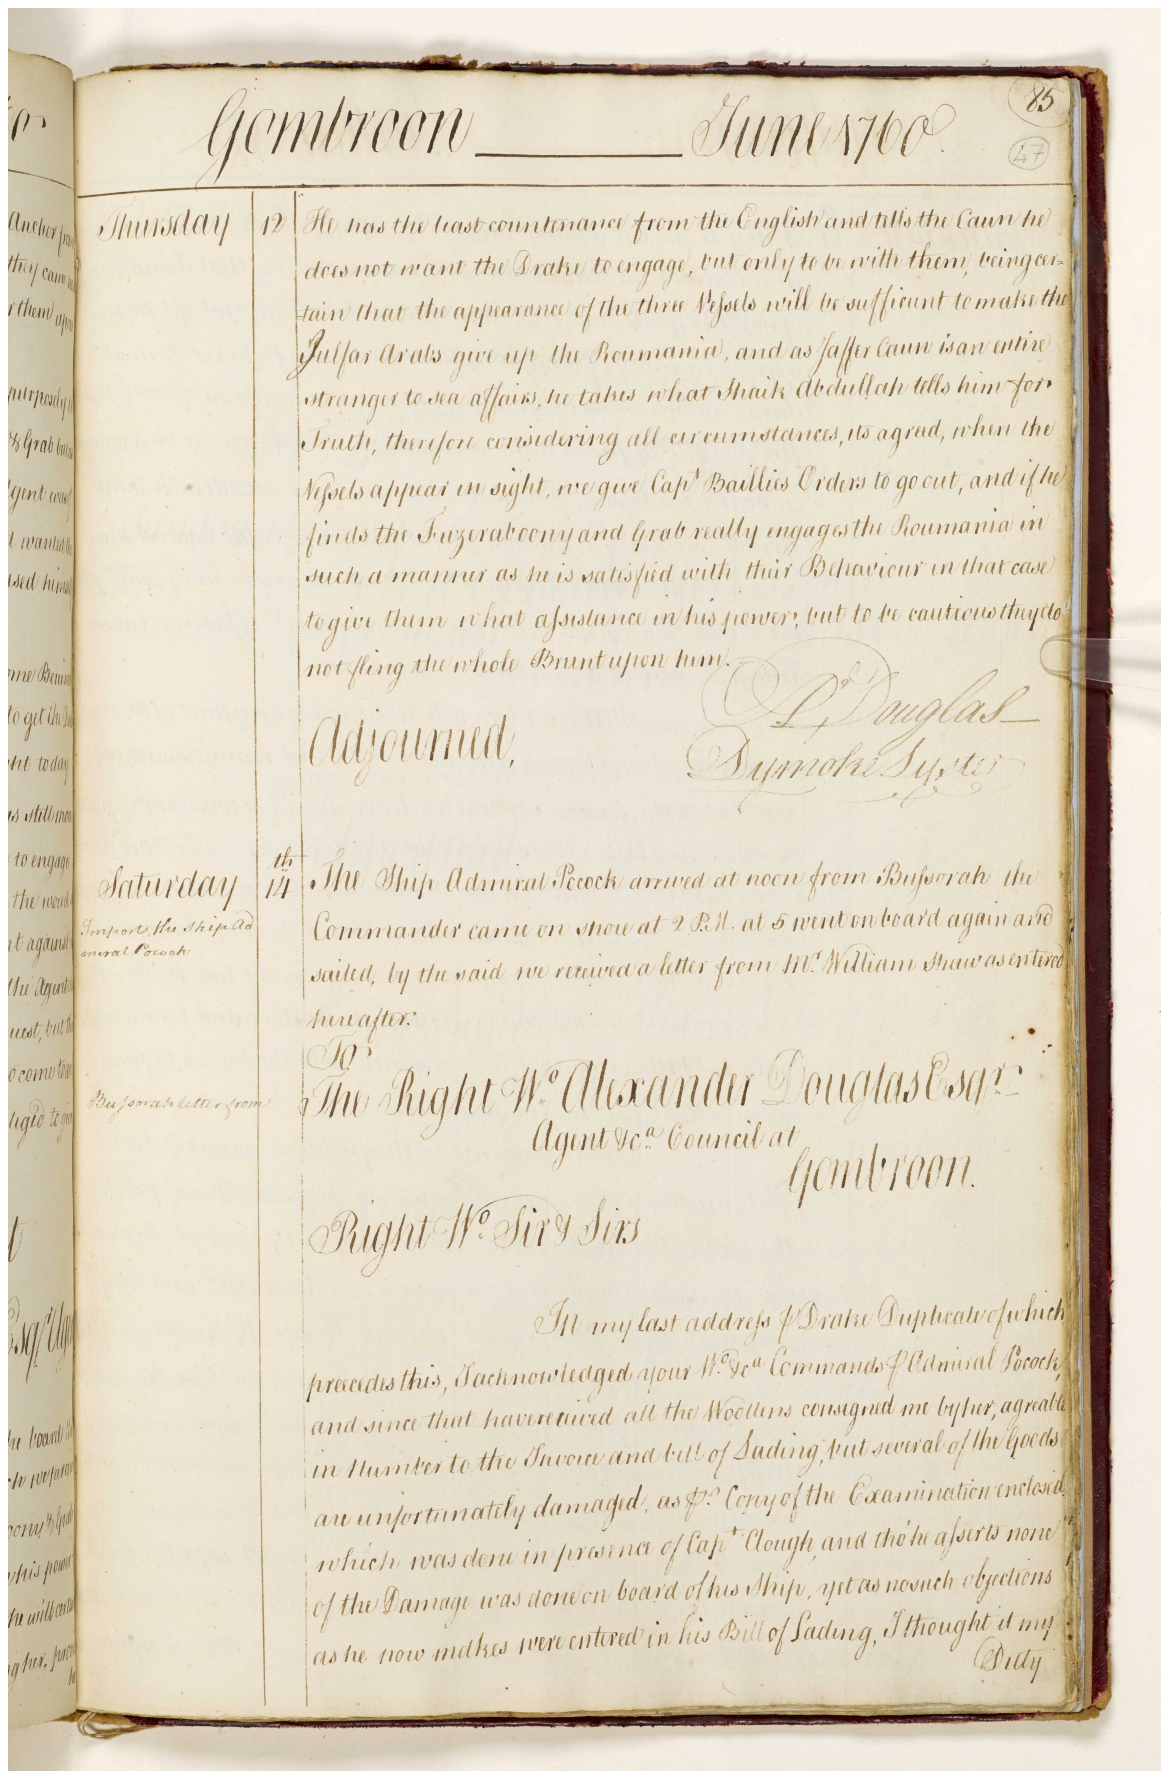 85
Gombroon June 1760.
47
Thursday 12 He has the least countenance from the English and tells the Caun he
does not want the Drake to engage, but only to be with them, being cer=
=tain that the appearance of the three Vessels will be sufficient to make the
Julfar Arabs give up the Roumania, and as Jaffer Caun is an entire
stranger to sea affairs, he takes what Shaik Abdullah tells him for
Truth, therefore considering all circumstances, its agreed, when the
Vessels appear in sight, we give Capt Baillies Orders to go out, and if he
finds the Fuzeraboony and Grab really engages the Roumania in
such a manner as he is satisfied with their Behaviour in that case
to give them what assistance in his power, but to be cautious they do
not fling the whole Brunt upon him.
Ad Douglas
Adjourned,
Dymoke Lyster
Saturday 14th The Ship Admiral Pocock arrived at noon from Bussorah the
Import, the ship Ad
miral Pocock
Commander came on shore at 2 P.M. at 5 went on board again and
sailed, by the said we received a letter from Mr. William Shaw as entered
hereafter.
To
Bussorah letter from
The Right Wo. Alexander Douglas Esqr.
Agent &ca. Council at
Gombroon.
Right Wo. Sir & Sirs
In my last address ⅌ Drake Duplicate of which
precedes this, I acknowledged your Wo. &ca Commands ⅌ Admiral Pocock,
and since that have received all the Woollens consigned me by her, agreable
in Number to the Invoice and bill of Lading, but several of the Goods
are unfortunately damaged, as ⅌r. Copy of the Examination enclosed,
which was done in presence of Capt Clough, and tho' he asserts none
of the Damage was done on board of his Ship, yet as no such objections
as he now makes were entered in his Bill of Lading, I thought it my
Duty